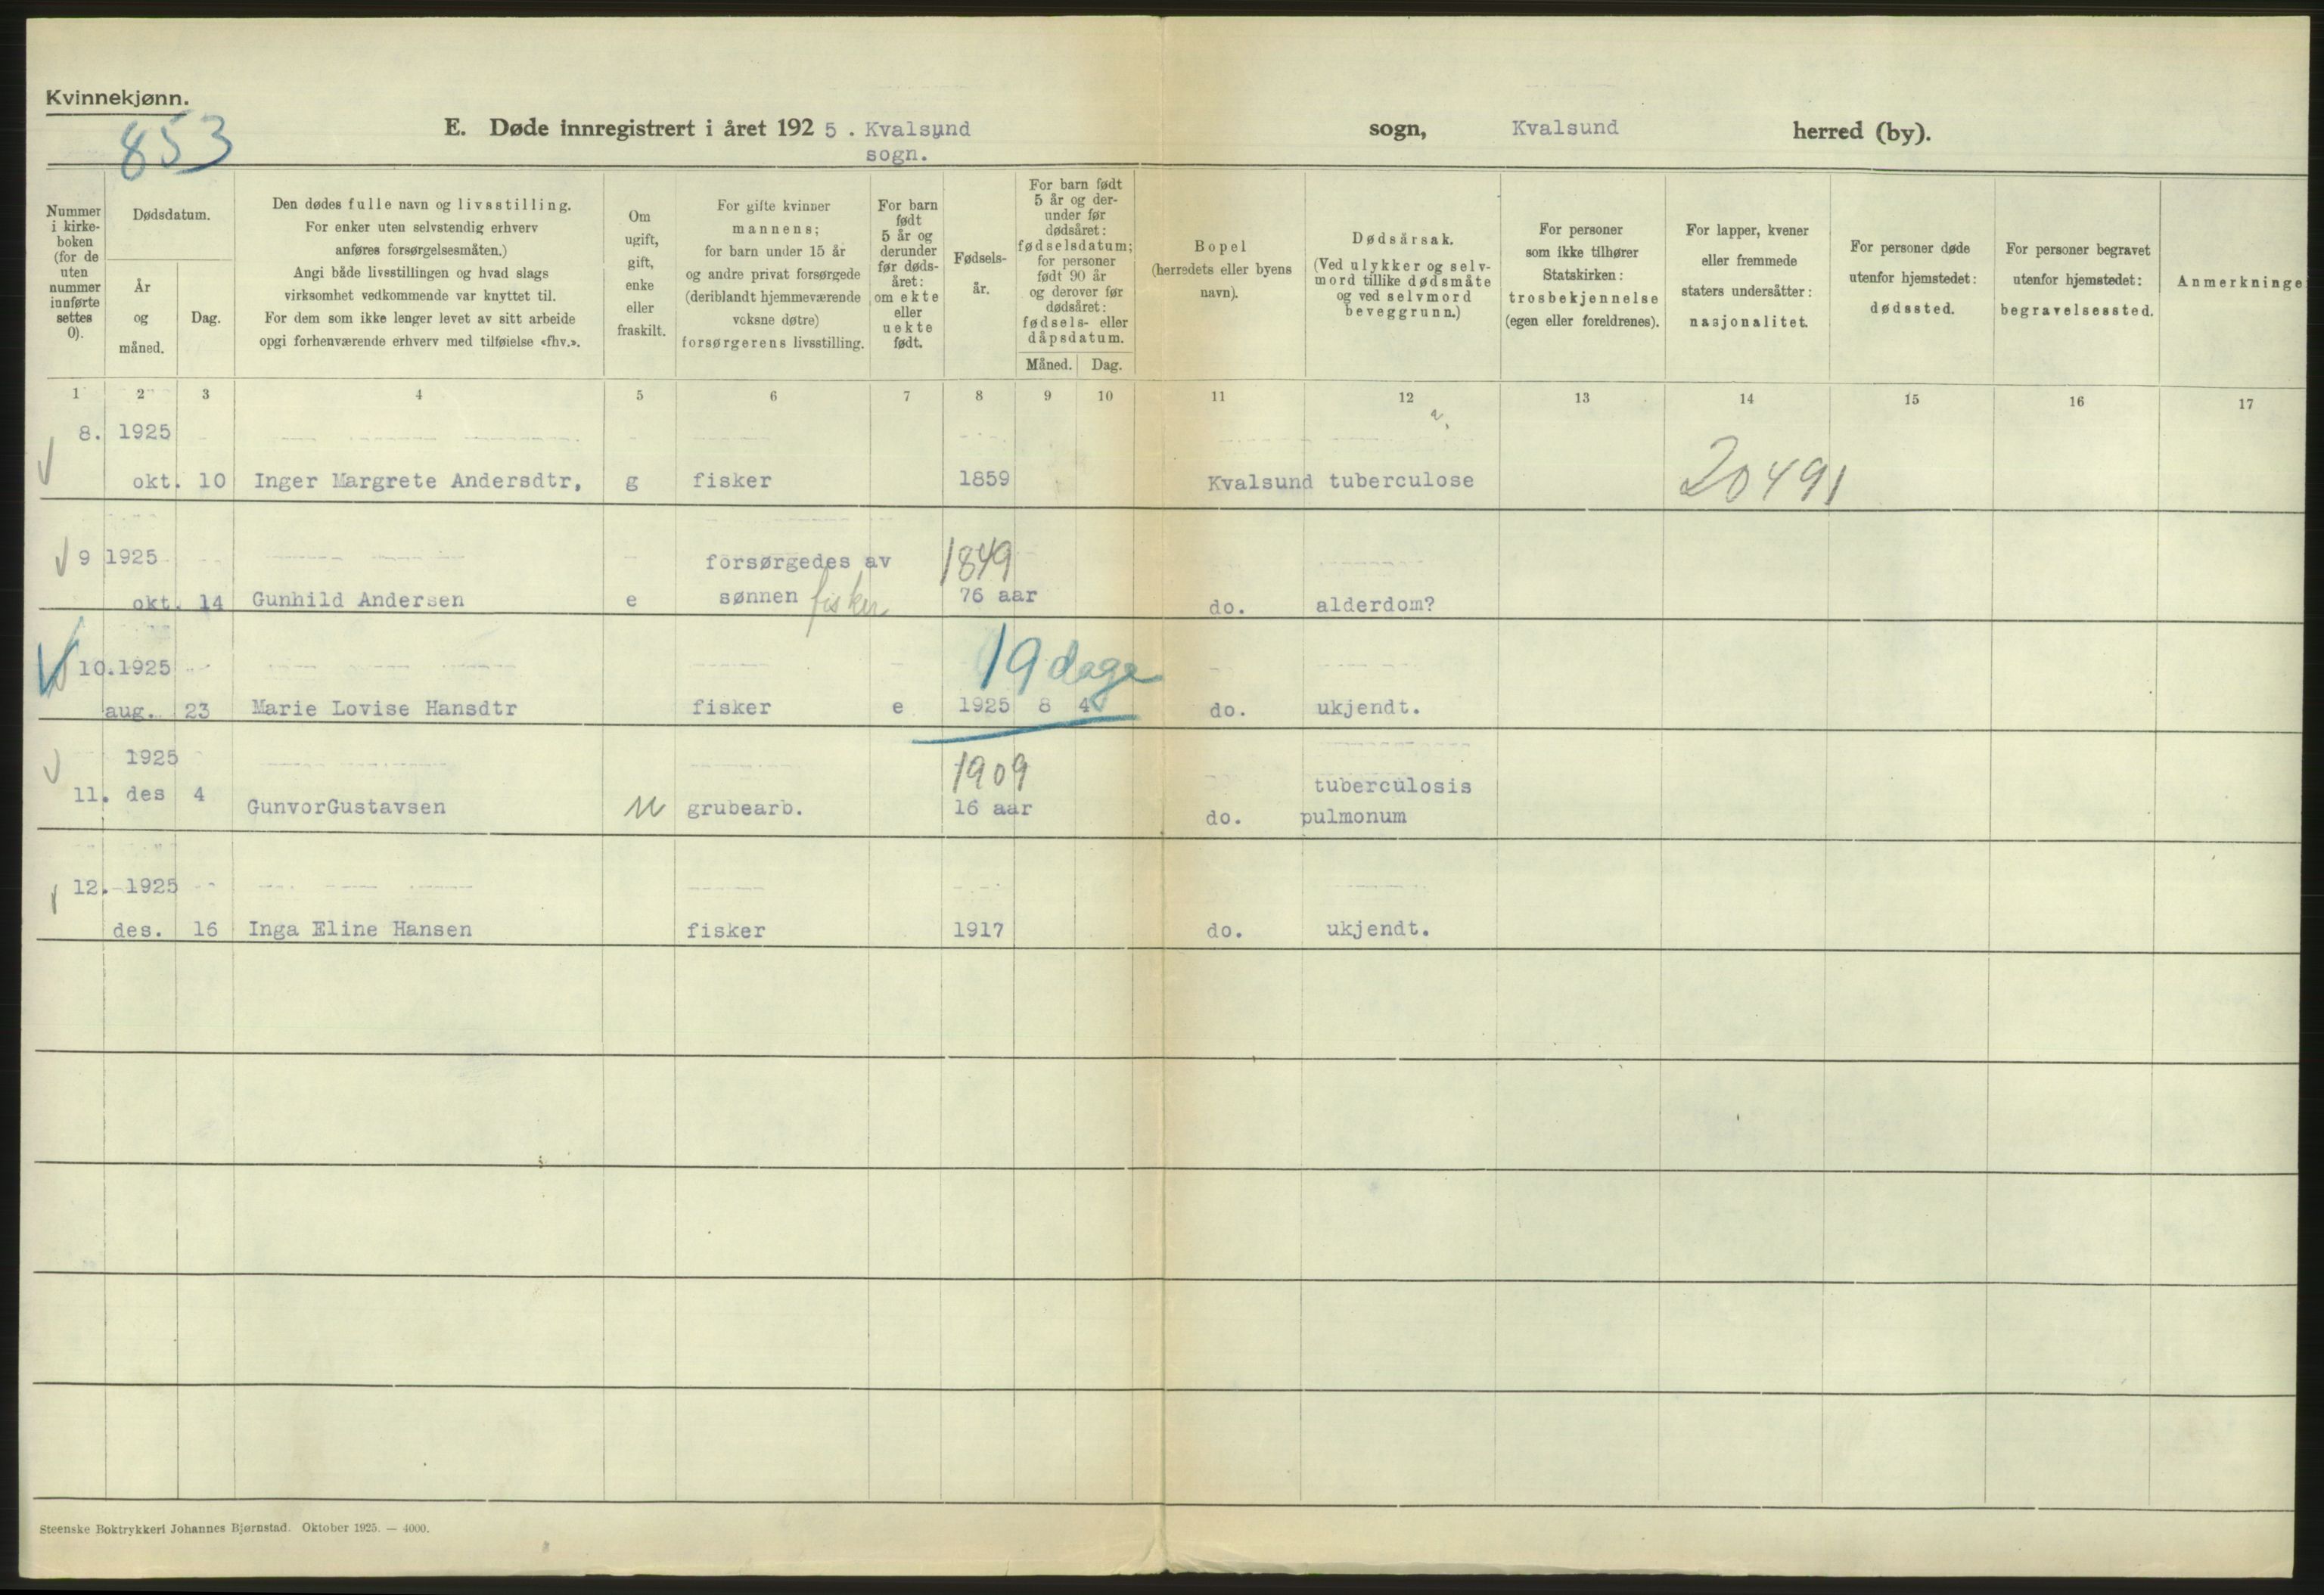 Kvinnekjønn.
853
E. Døde innregistrert i året 192 5 . Kvalsund sogn, Kvalsund herred (by).
sogn.
Nummer i kirke-boken (for de uten nummer innførte settes 0).
Dødsdatum.
År og måned.
Dag.
Den dødes fulle navn og livsstilling.
For enker uten selvstendig erhverv
anføres forsørgelsesmåten.)
Angi både livsstillingen og hvad slags
virksomhet vedkommende var knyttet til.
For dem som ikke lenger levet av sitt arbeide
opgi forhenværende erhverv med tilføielse «fhv.».
Om
ugift,
gift,
enke
eller
fraskilt.
For gifte kvinner
mannens;
for barn under 15 år
og andre privat forsørgede
(deriblandt hjemmeværende
voksne døtre)
forsørgerens livsstilling.
For barn
født
5 år og
derunder
før døds-
året:
om ekte
eller
uekte
født.
Fødsels-
år.
For barn født
5 år og der-
under før
dødsåret:
fødselsdatum;
for personer
født 90 år
og derover før
dødsåret:
fødsels- eller
dåpsdatum.
Måned. Dag.
Bopel
(herredets eller byens
navn).
Dødsårsak.
(Ved ulykker og selv-
mord tillike dødsmåte
og ved selvmord
beveggrunn.)
For personer
som ikke tilhører
Statskirken:
trosbekjennelse
(egen eller foreldrenes).
For lapper, kvener
eller fremmede
staters undersåtter:
nasjonalitet.
For personer døde
utenfor hjemstedet:
dødssted.
For personer begravet
utenfor hjemstedet:
begravelsessted.
Anmerkninge
1 2 3 4 5 6 7 8 9 10 11 12 13 14 15 16 17
8. 1925
okt. 10 Inger Margrete Andersdtr, g fisker 1859 Kvalsund tuberculose 20491
9 1925 forsørgedes av 1849
okt. 14 Gunhild Andersen e sønnen fisker 76 aar do. alderdom?
10.1925 19 dage
aug. 23 Marie Lovise Hansdtr fisker e 1925 8 4 do. ukjendt.
1925 1909
11. des 4 tuberculosis
GunvorGustavsen u grubearb. 16 aar do. pulmonum
12. 1925
des. 16 Inga Eline Hansen fisker 1917 do. ukjendt.
Steenske Boktrykkeri Johannes Bjørnstad. Oktober 1925. — 4000.